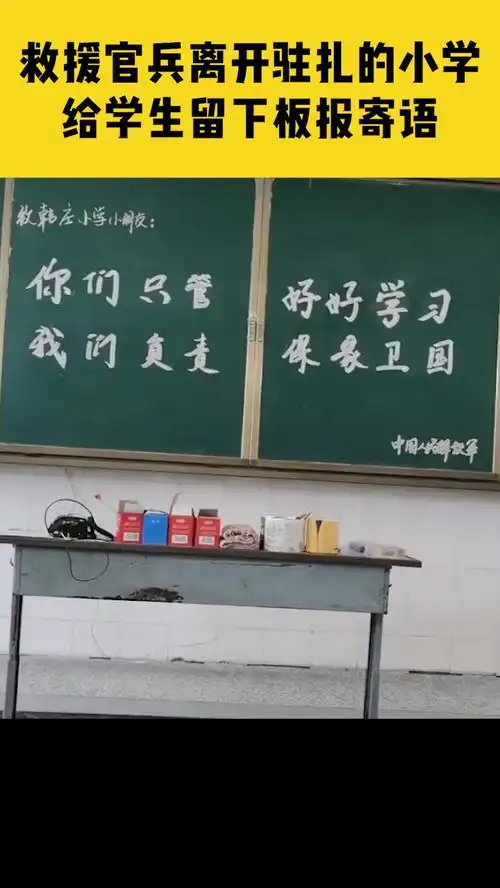 救援官兵离开驻扎的小学
给学生留下板报寄语
致韩庄小学小朋友：
你们只管 好好学习
我们负责 保家卫国
中国人民解放军